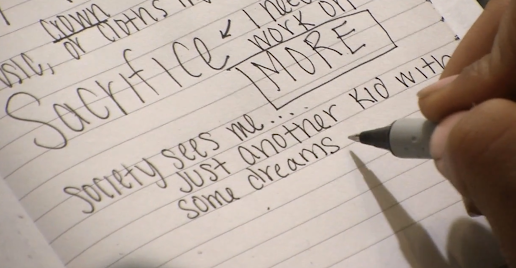 crown
or cloths
Sacrifice
I need
work on
MORE
Society sees me.....
Just another kid with
some dreams